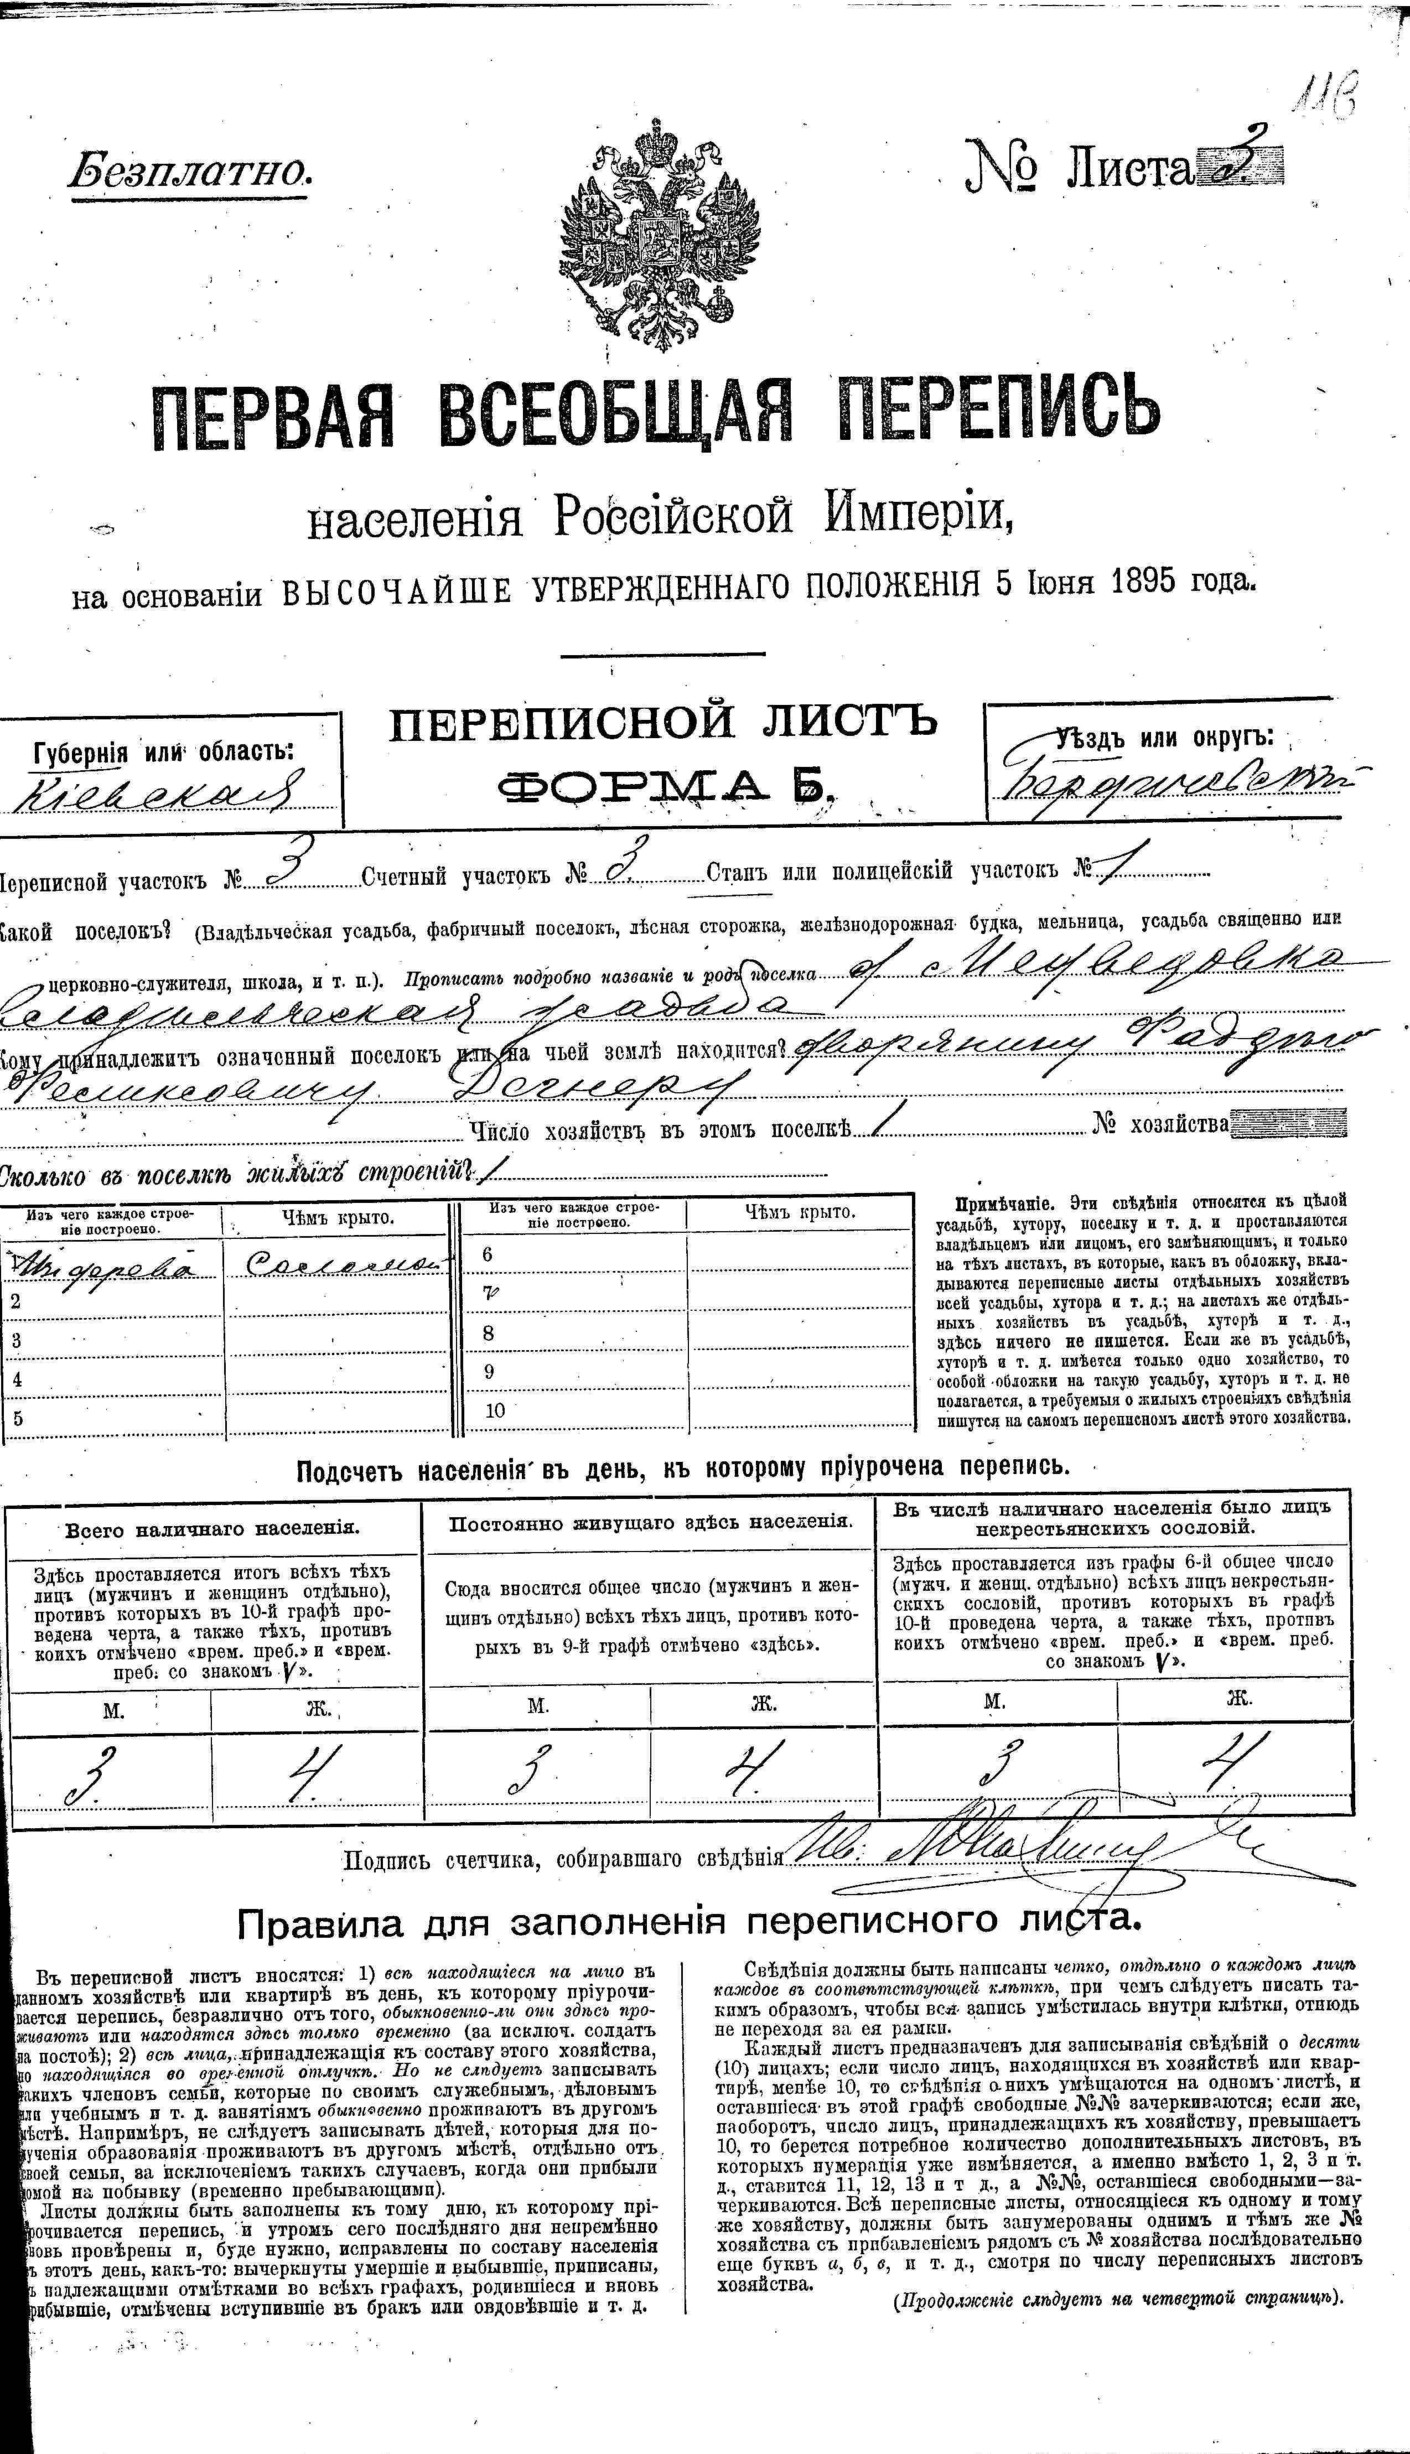 116
Безплатно.
№ Листа 3.
ПЕРВАЯ ВСЕОБЩАЯ ПЕРЕПИСЬ
населенія Россійской Имперіи,
на основаніи ВЫСОЧАЙШЕ УТВЕРЖДЕННАГО ПОЛОЖЕНІЯ 5 Іюня 1895 года.
ПЕРЕПИСНОЙ ЛИСТЪ
ФОРМА Б.
Губернія или область:
Кіевская
Уѣздъ или округъ:
Бердичевскій
Переписной участокъ № 3 Счетный участокъ № 3. Станъ или полицейскій участокъ № 1
Какой поселокъ? (Владѣльческая усадьба, фабричный поселокъ, лѣсная сторожка, желѣзнодорожная будка, мельница, усадьба священно или
церковно-служителя, школа, и т. п.). Прописать подробно названіе и родъ поселка Медведовка
владѣльческая усадьба
Кому принадлежитъ означенный поселокъ или на чьей землѣ находится? дворянину
Феликсовичу
Число хозяйствъ въ этомъ поселкѣ 1 № хозяйства
Сколько въ поселкѣ жилыхъ строеній? 1
Изъ чего каждое строе-
ніе построено.
Чѣмъ крыто.
Изъ чего каждое строе-
ніе построено.
Чѣмъ крыто.
Изъ дерева Соломой
2
3
4
5
6
7
8
9
10
Примѣчаніе. Эти свѣдѣнія относятся къ цѣлой
усадьбѣ, хутору, поселку и т. д. и проставляются
владѣльцемъ или лицомъ, его замѣняющимъ, и только
на тѣхъ листахъ, въ которые, какъ въ обложку, вкла-
дываются переписные листы отдѣльныхъ хозяйствъ
всей усадьбы, хутора и т. д.; на листахъ же отдѣль-
ныхъ хозяйствъ въ усадьбѣ, хуторѣ и т. д.,
здѣсь ничего не пишется. Если же въ усадьбѣ,
хуторѣ и т. д. имѣется только одно хозяйство, то
особой обложки на такую усадьбу, хуторъ и т. д. не
полагается, а требуемыя о жилыхъ строеніяхъ свѣдѣнія
пишутся на самомъ переписномъ листѣ этого хозяйства.
Подсчетъ населенія въ день, къ которому пріурочена перепись.
Всего наличнаго населенія.
Здѣсь проставляется итогъ всѣхъ тѣхъ
лицъ (мужчинъ и женщинъ отдѣльно),
противъ которыхъ въ 10-й графѣ про-
ведена черта, а также тѣхъ, противъ
коихъ отмѣчено «врем. преб.» и «врем.
преб. со знакомъ V».
Постоянно живущаго здѣсь населенія.
Сюда вносится общее число (мужчинъ и жен-
щинъ отдѣльно) всѣхъ тѣхъ лицъ, противъ кото-
рыхъ въ 9-й графѣ отмѣчено «здѣсь».
Въ числѣ наличнаго населенія было лицъ
некрестьянскихъ сословій.
Здѣсь проставляется изъ графы 6-й общее число
(мужч. и женщ. отдѣльно) всѣхъ лицъ некрестьян-
скихъ сословій, противъ которыхъ въ графѣ
10-й проведена черта, а также тѣхъ, противъ
коихъ отмѣчено «врем. преб.» и «врем. преб.
со знакомъ V».
М. Ж. М. Ж. М. Ж.
3. 4. 3 4. 3 4.
Подпись счетчика, собиравшаго свѣдѣнія
Правила для заполненія переписного листа.
Въ переписной листъ вносятся: 1) всѣ находящіеся на лицо въ
данномъ хозяйствѣ или квартирѣ въ день, къ которому пріурочи-
вается перепись, безразлично отъ того, обыкновенно-ли они здѣсь про-
живаютъ или находятся здѣсь только временно (за исключ. солдатъ
на постоѣ); 2) всѣ лица, принадлежащія къ составу этого хозяйства,
но находящіяся во временной отлучкѣ. Но не слѣдуетъ записывать
такихъ членовъ семьи, которые по своимъ служебнымъ, дѣловымъ
или учебнымъ и т. д. занятіямъ обыкновенно проживаютъ въ другомъ
мѣстѣ. Напримѣръ, не слѣдуетъ записывать дѣтей, которыя для по-
лученія образованія проживаютъ въ другомъ мѣстѣ, отдѣльно отъ
своей семьи, за исключеніемъ такихъ случаевъ, когда они прибыли
домой на побывку (временно пребывающими).
Листы должны быть заполнены къ тому дню, къ которому прі-
урочивается перепись, и утромъ сего послѣдняго дня непремѣнно
вновь провѣрены и, буде нужно, исправлены по составу населенія
въ этотъ день, какъ-то: вычеркнуты умершіе и выбывшіе, приписаны,
съ надлежащими отмѣтками во всѣхъ графахъ, родившіеся и вновь
прибывшіе, отмѣчены вступившіе въ бракъ или овдовѣвшіе и т. д.
Свѣдѣнія должны быть написаны четко, отдѣльно о каждомъ лицѣ
каждое въ соотвѣтствующей клѣткѣ, при чемъ слѣдуетъ писать та-
кимъ образомъ, чтобы вся запись умѣстилась внутри клѣтки, отнюдь
не переходя за ея рамки.
Каждый листъ предназначенъ для записыванія свѣдѣній о десяти
(10) лицахъ; если число лицъ, находящихся въ хозяйствѣ или квар-
тирѣ, менѣе 10, то свѣдѣнія о нихъ умѣщаются на одномъ листѣ, и
оставшіеся въ этой графѣ свободные №№ зачеркиваются; если же,
наоборотъ, число лицъ, принадлежащихъ къ хозяйству, превышаетъ
10, то берется потребное количество дополнительныхъ листовъ, въ
которыхъ нумерація уже измѣняется, а именно вмѣсто 1, 2, 3 и т.
д., ставится 11, 12, 13 и т д., а №№, оставшіеся свободными—за-
черкиваются. Всѣ переписные листы, относящіеся къ одному и тому
же хозяйству, должны быть занумерованы однимъ и тѣмъ же №
хозяйства съ прибавленіемъ рядомъ съ № хозяйства послѣдовательно
еще буквъ а, б, в, и т. д., смотря по числу переписныхъ листовъ
хозяйства.
(Продолженіе слѣдуетъ на четвертой страницѣ).